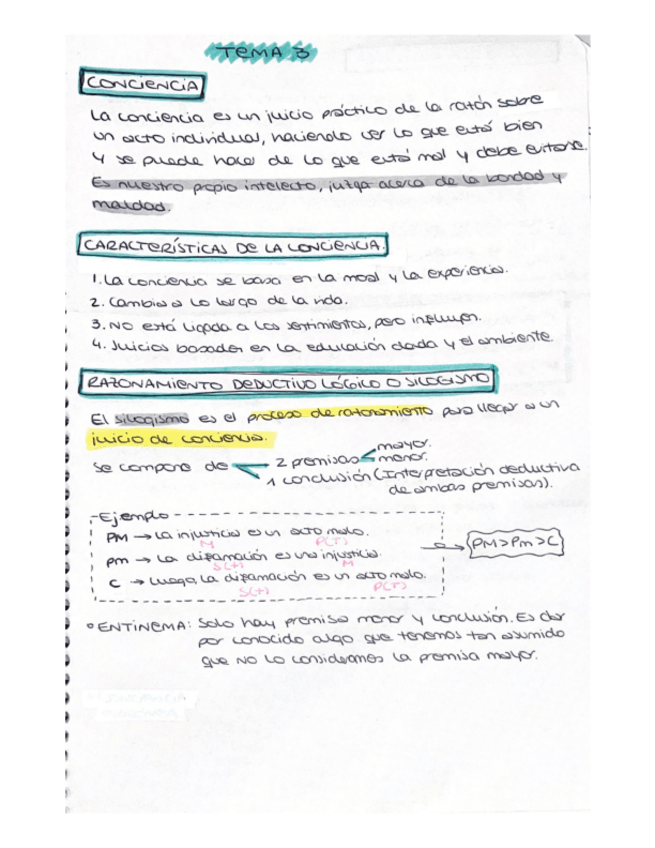 TEMA 3
CONCIENCIA
La conciencia es un juicio práctico de la razón sobre
un acto individual, haciendo ver lo que está bien
y se puede hacer de lo que está mal y debe evitarse.
Es nuestro propio intelecto, juzga acerca de la bondad y
maldad.
CARACTERÍSTICAS DE LA CONCIENCIA.
1. La conciencia se basa en la moral y la experiencia.
2. Cambia a lo largo de la vida.
3. No está ligada a los sentimientos, pero influyen.
4. Juicios basados en la educación dada y el ambiente.
RAZONAMIENTO DEDUCTIVO LÓGICO O SILOGISMO
El silogismo es el proceso de razonamiento para llegar a un
juicio de conciencia.
mayor.
Se compone de 2 premisas menor.
1 conclusión (Interpretación deductiva
de ambas premisas).
Ejemplo
PM → La injusticia es un acto malo.
M P(T)
pm → La difamación es una injusticia.
S(t) M
C → Luego, la difamación es un acto malo.
S(t) P(T)
PM>Pm>C
° ENTINEMA: Solo hay premisa menor y conclusión. Es dar
por conocido algo que tenemos tan asumido
que no lo consideramos la premisa mayor.